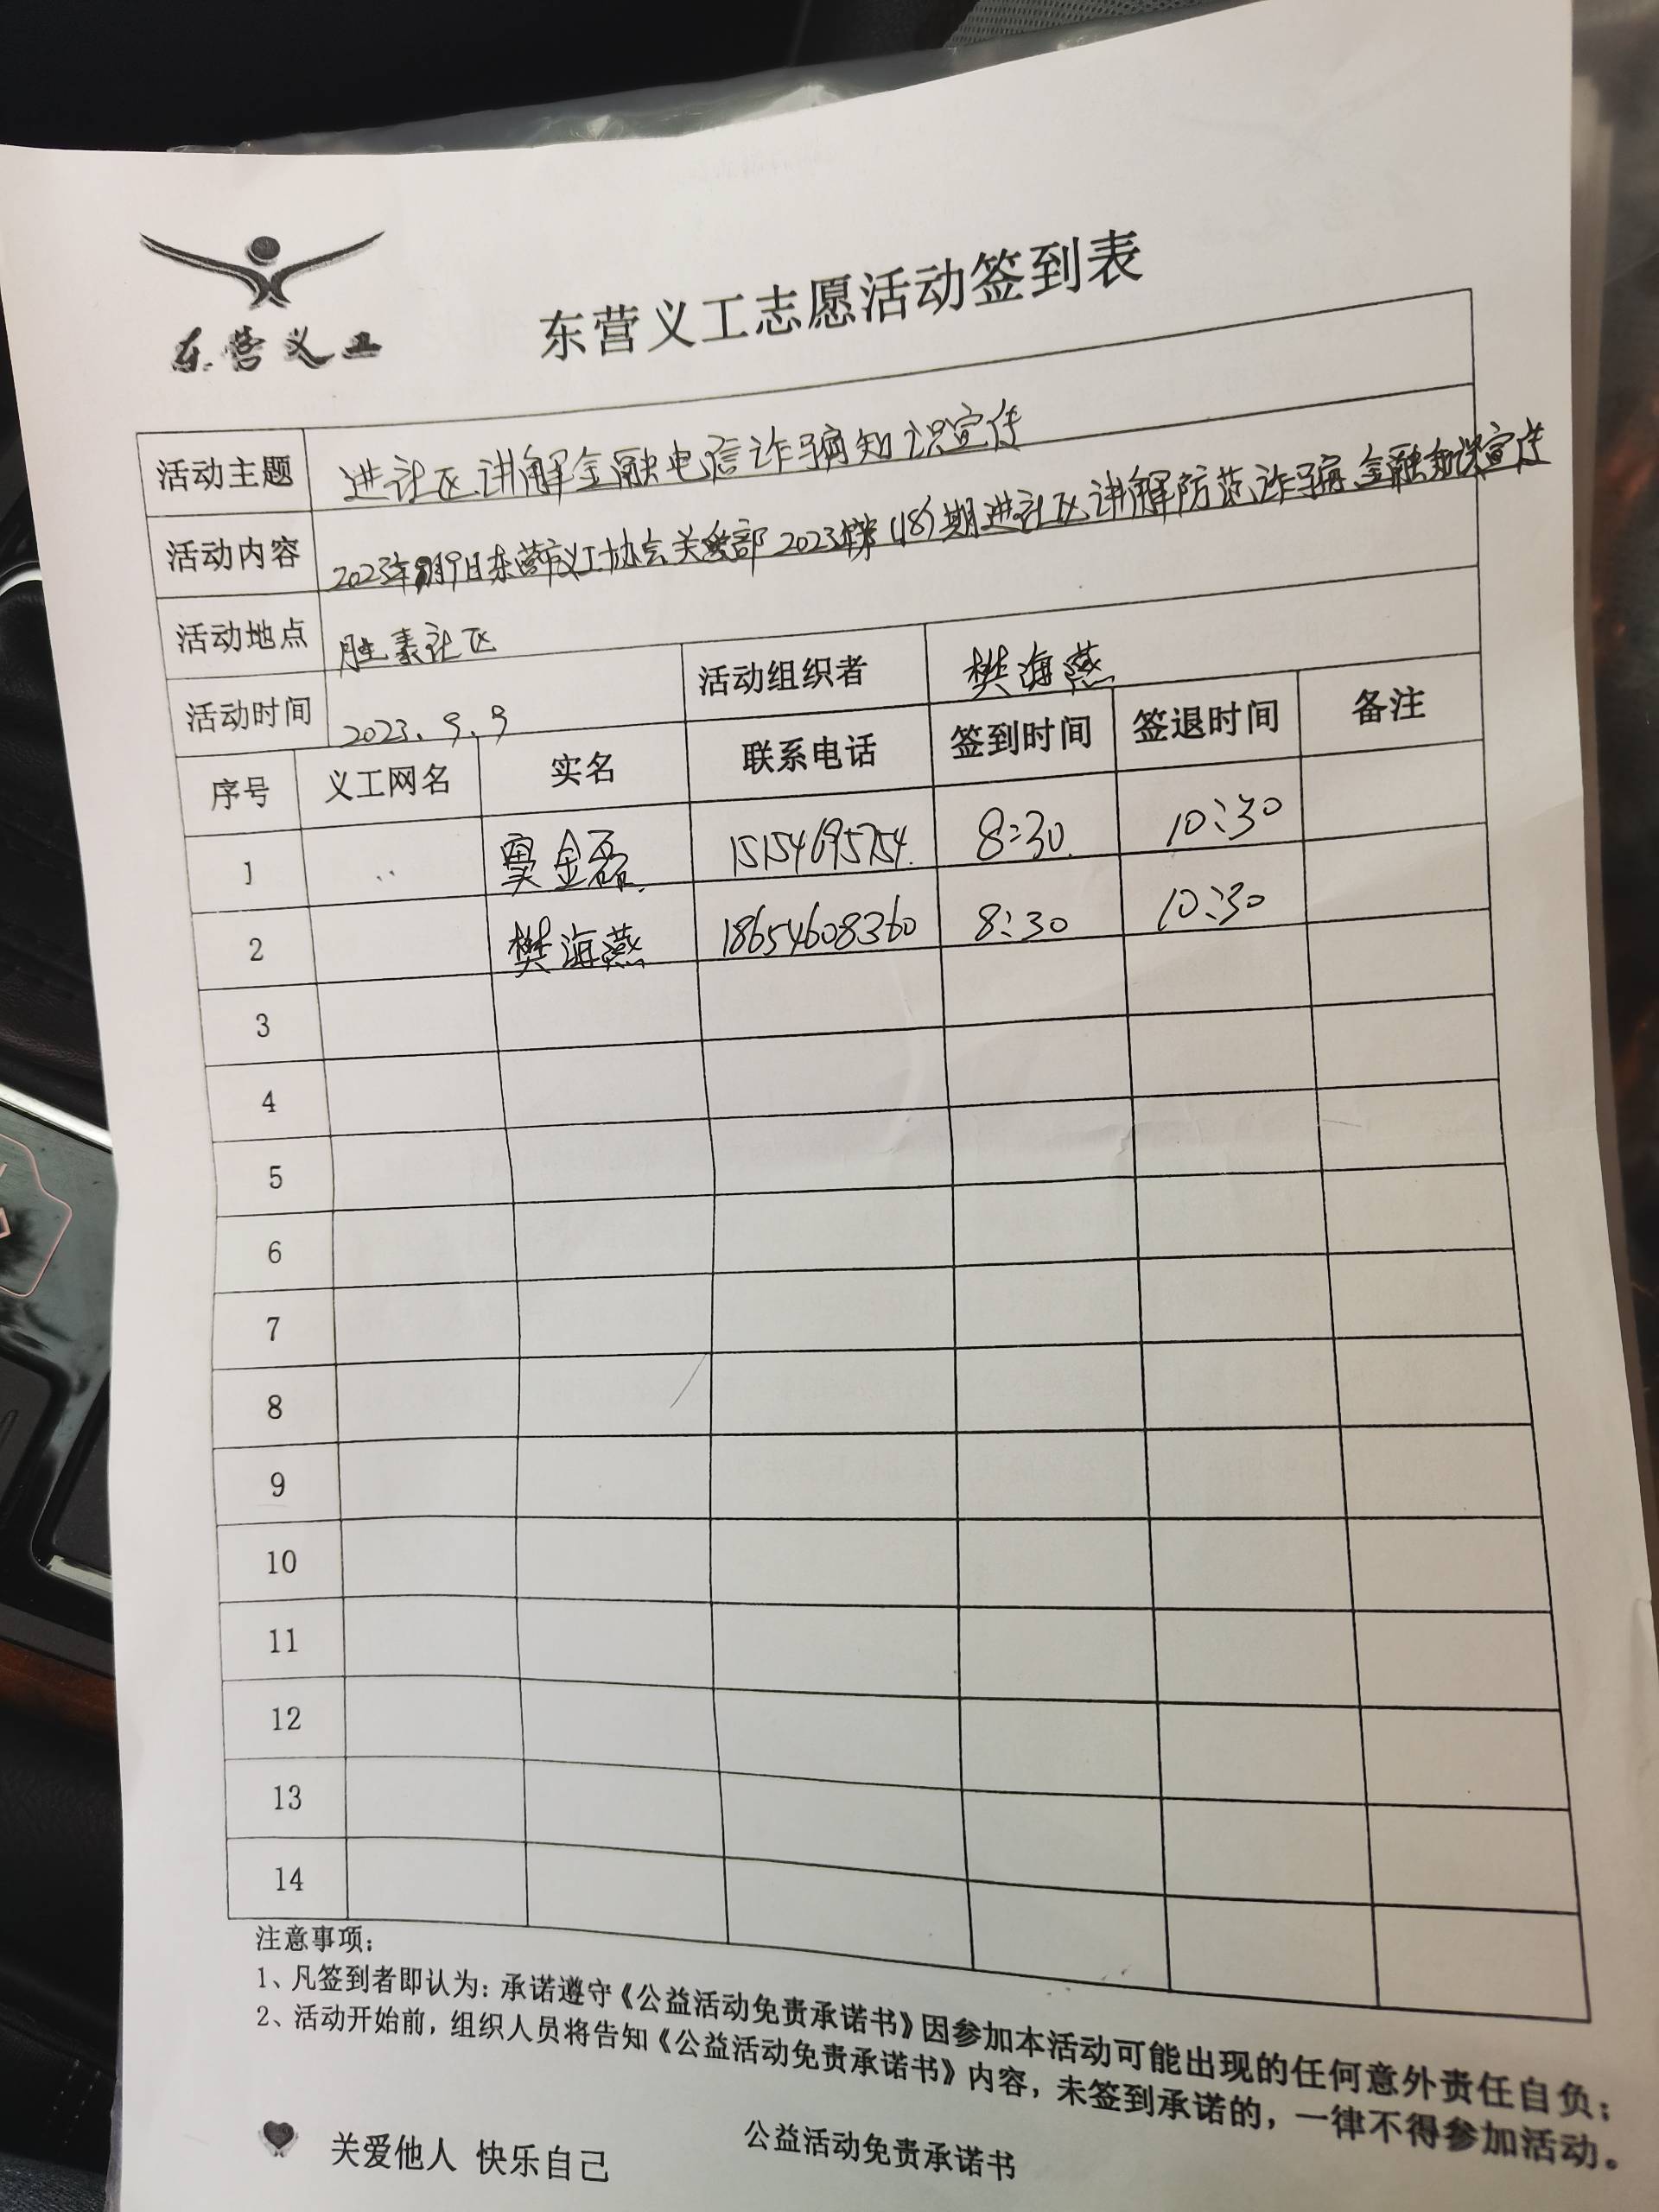 东营义工
东营义工志愿活动签到表
活动主题 进社区讲解金融电信诈骗知识宣传
活动内容 2023年9月9日东营市义工协会关爱部2023年第(18)期进社区讲解防范诈骗、金融知识宣传
活动地点 胜泰社区
活动时间 2023.9.9 活动组织者 樊海燕
序号 义工网名 实名 联系电话 签到时间 签退时间 备注
1 窦金磊 15154695754 8:30 10:30
2 樊海燕 18654608360 8:30 10:30
3
4
5
6
7
8
9
10
11
12
13
14
注意事项:
1、凡签到者即认为:承诺遵守《公益活动免责承诺书》因参加本活动可能出现的任何意外责任自负;
2、活动开始前,组织人员将告知《公益活动免责承诺书》内容,未签到承诺的,一律不得参加活动。
关爱他人 快乐自己 公益活动免责承诺书